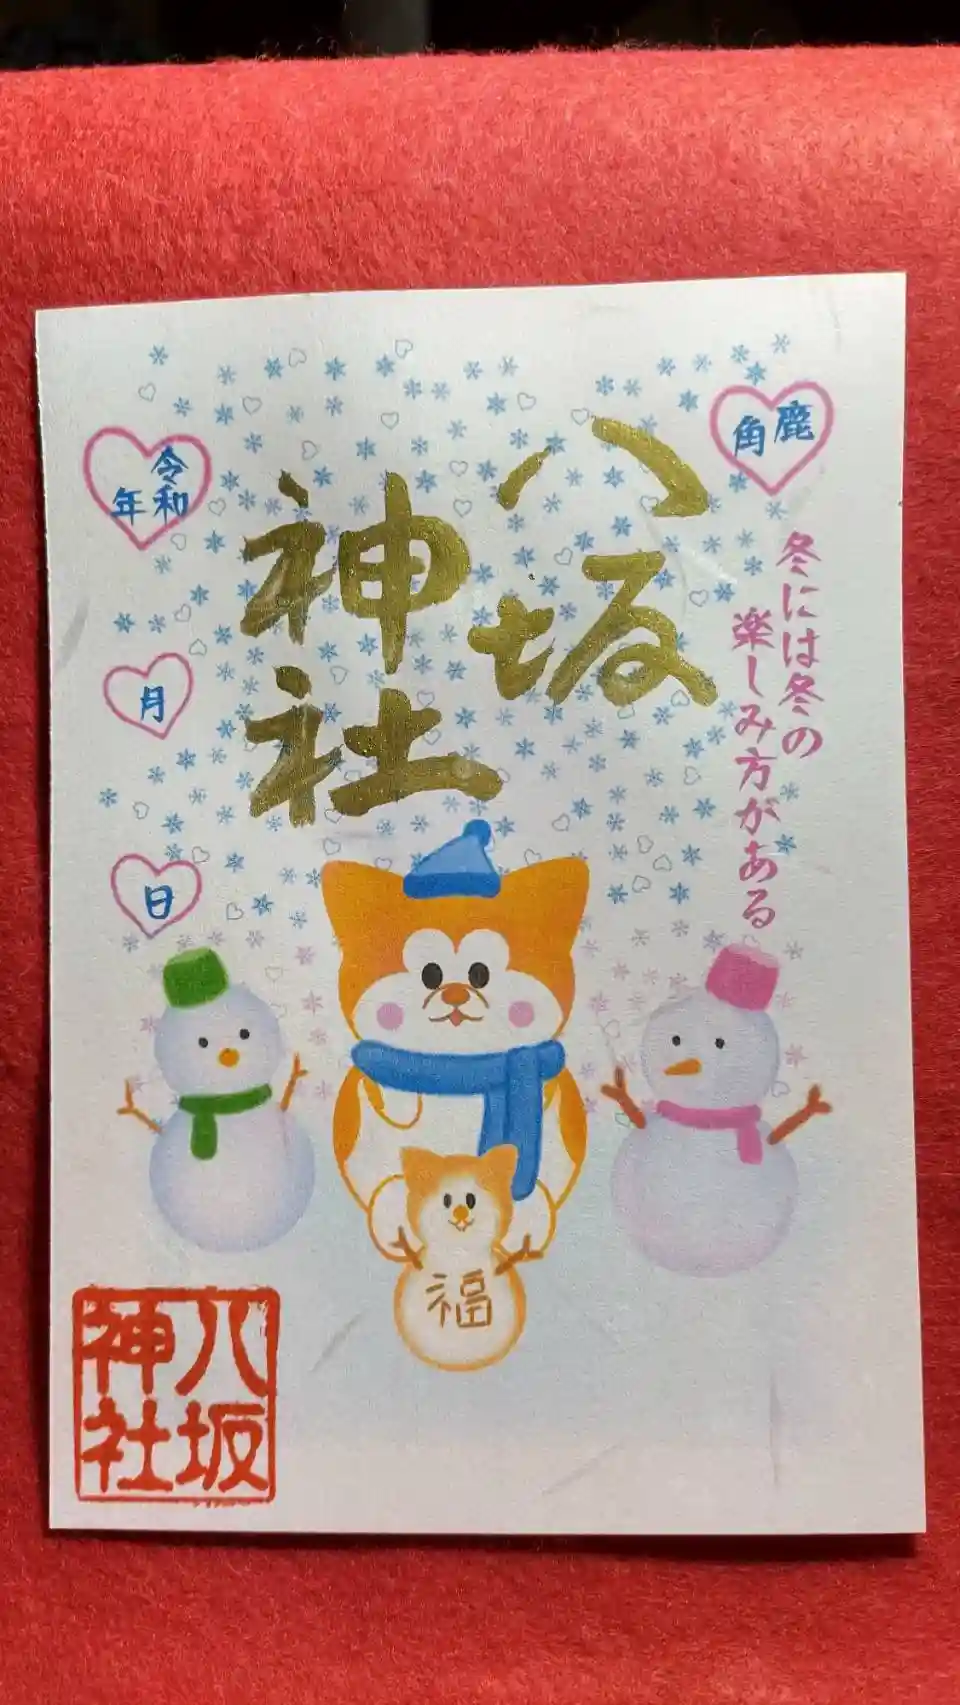 鹿角
冬には冬の
楽しみ方がある
八坂
神社
令和
年
月
日
福
八坂
神社